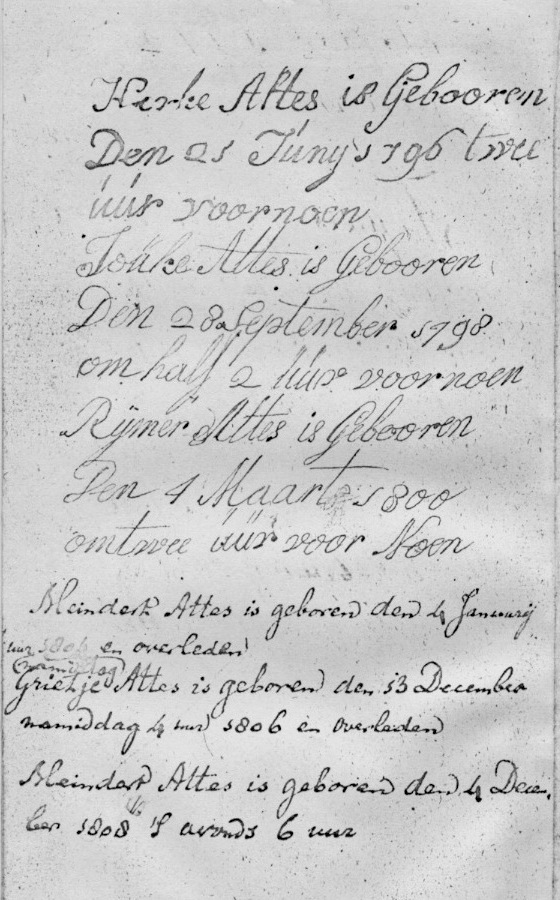 Herke Attes is Gebooren
Den 25 Junÿ 1796 twee
uúr voornoen
Jouke Attes is Gebooren
Den 28 September 1798
om half 2 uúr voornoen
Rÿmer Attes is Gebooren
Den 4 Maart 1800
om twee uúr voor Noen
Meindert Attes is geboren den 4 Januarij
uur 1804 en overleden
(namiddag)
Grietje Attes is geboren den 13 December
namiddag 4 uur 1806 en overleden
Meindert Attes is geboren den 4 Decem
ber 1808 'S avonds 6 uur